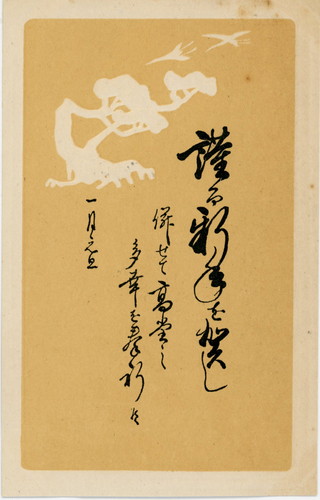 謹而新年を賀し
併せて高堂之
多幸を奉祈候
一月元旦